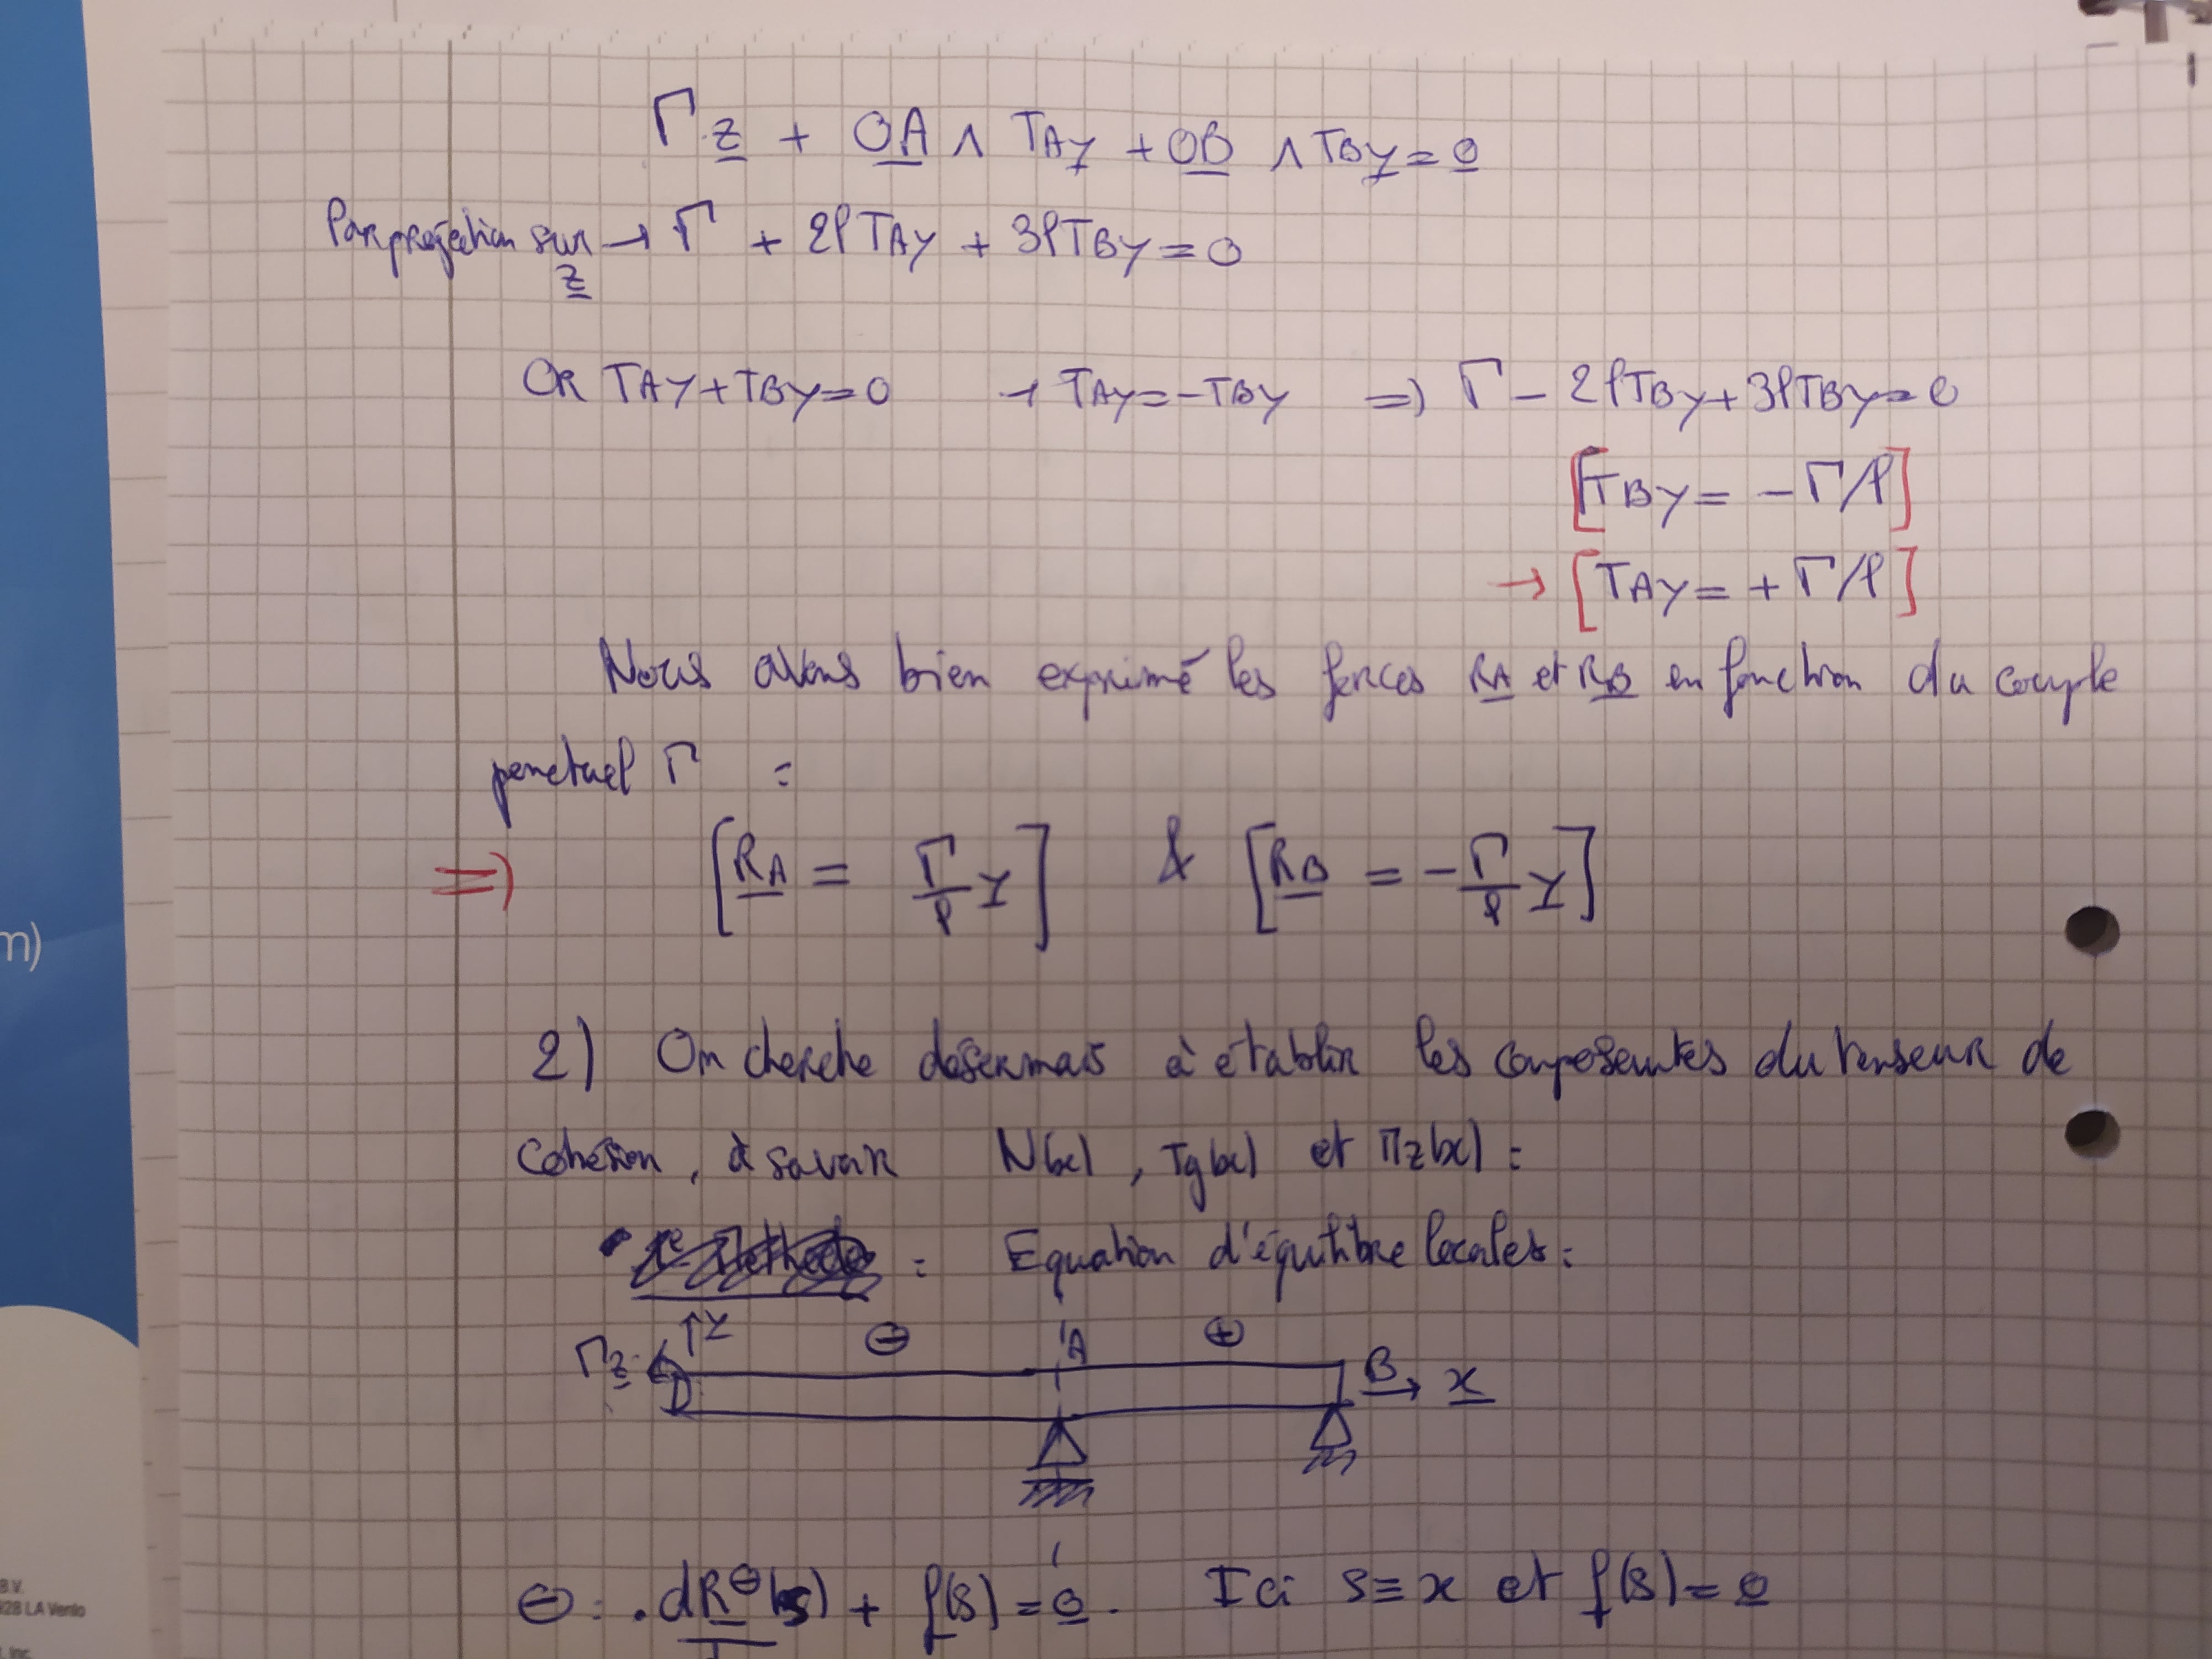 Γ z + OA ∧ TAy + OB ∧ TBy = 0
Par projection sur z → Γ + 2ℓ TAy + 3ℓ TBy = 0
OR TAy + TBy = 0 → TAy = -TBy => Γ - 2ℓTBy + 3ℓTBy = 0
[TBy = -Γ/ℓ]
→ [TAy = +Γ/ℓ]
Nous avons bien exprimé les forces RA et RB en fonction du couple
ponctuel Γ :
=> [RA = Γ/ℓ y] & [RB = -Γ/ℓ y]
2) On cherche désormais à établir les composantes du tenseur de
cohésion, à savoir N(x), Ty(x) et Mz(x) :
: Equation d'équilibre locales :
y ⊖ A ⊕
Γz B x
⊖ : . dR⊖(s) + f(s) = 0. Ici s ≡ x et f(s) = 0
n)
B.V.
928 LA Venlo
Inc.